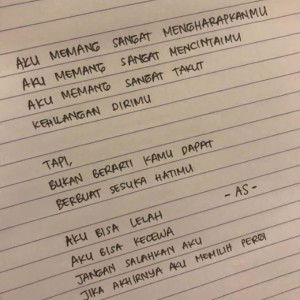 AKU MEMANG SANGAT MENGHARAPKANMU
AKU MEMANG SANGAT MENCINTAIMU
AKU MEMANG SANGAT TAKUT
KEHILANGAN DIRIMU
TAPI,
BUKAN BERARTI KAMU DAPAT
BERBUAT SESUKA HATIMU
- AS -
AKU BISA LELAH
AKU BISA KECEWA
JANGAN SALAHKAN AKU
JIKA AKHIRNYA AKU MEMILIH PERGI